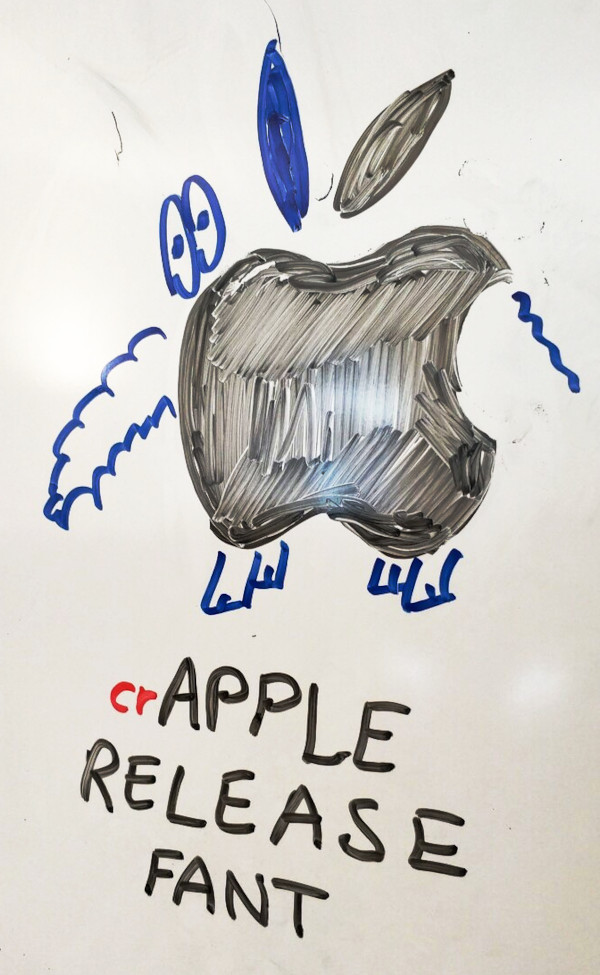 crAPPLE
RELEASE
FANT